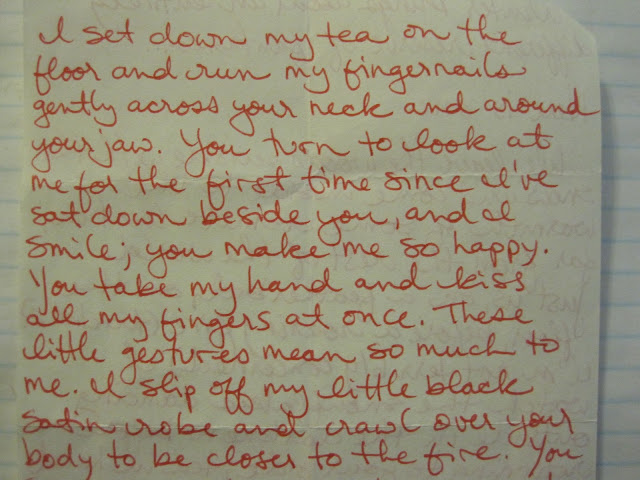 I set down my tea on the
floor and run my fingernails
gently across your neck and around
your jaw. You turn to look at
me for the first time since I've
sat down beside you, and I
smile; you make me so happy.
You take my hand and kiss
all my fingers at once. These
little gestures mean so much to
me. I slip off my little black
satin robe and crawl over your
body to be closer to the fire. You